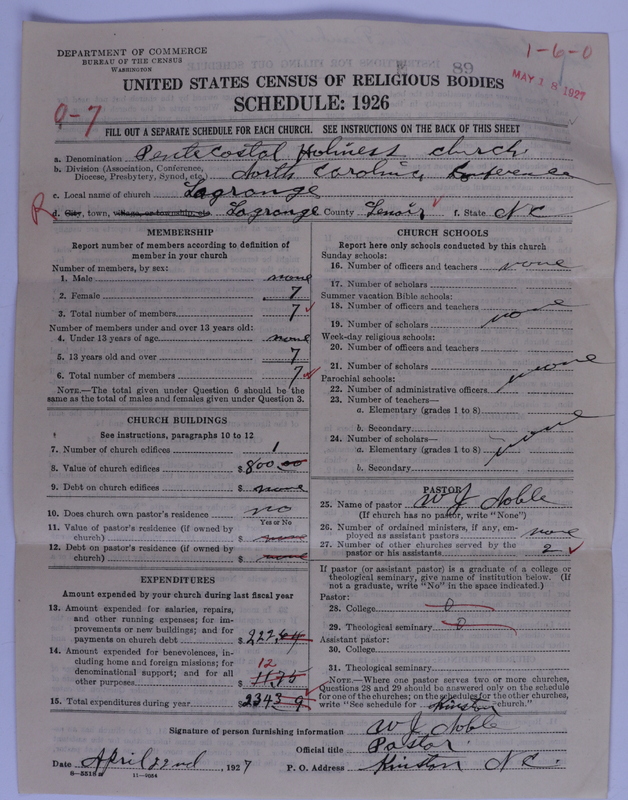 DEPARTMENT OF COMMERCE
BUREAU OF THE CENSUS
WASHINGTON
89
1-6-0
MAY 18 1927
UNITED STATES CENSUS OF RELIGIOUS BODIES
SCHEDULE: 1926
0-7
FILL OUT A SEPARATE SCHEDULE FOR EACH CHURCH. SEE INSTRUCTIONS ON THE BACK OF THIS SHEET
a. Denomination Pentecostal Holiness church
b. Division (Association, Conference, Diocese, Presbytery, Synod, etc.) North Carolina Conference
c. Local name of church Lagrange
R d. City, town, village, or township, etc. Lagrange County Lenoir f. State N C
MEMBERSHIP
Report number of members according to definition of
member in your church
Number of members, by sex:
1. Male none
2. Female 7
3. Total number of members 7
Number of members under and over 13 years old:
4. Under 13 years of age none
5. 13 years old and over 7
6. Total number of members 7
NOTE.—The total given under Question 6 should be the
same as the total of males and females given under Question 3.
CHURCH BUILDINGS
See instructions, paragraphs 10 to 12
7. Number of church edifices 1
8. Value of church edifices $ 800.00
9. Debt on church edifices $ none
10. Does church own pastor's residence? no
Yes or No
11. Value of pastor's residence (if owned by
church) $ none
12. Debt on pastor's residence (if owned by
church) $ none
EXPENDITURES
Amount expended by your church during last fiscal year
13. Amount expended for salaries, repairs,
and other running expenses; for im-
provements or new buildings; and for
payments on church debt $
14. Amount expended for benevolences, in-
cluding home and foreign missions; for
denominational support; and for all
other purposes $ 12 11.75
15. Total expenditures during year $
CHURCH SCHOOLS
Report here only schools conducted by this church
Sunday schools:
16. Number of officers and teachers none
17. Number of scholars
Summer vacation Bible schools:
18. Number of officers and teachers none
19. Number of scholars
Week-day religious schools:
20. Number of officers and teachers
21. Number of scholars none
Parochial schools:
22. Number of administrative officers
23. Number of teachers—
a. Elementary (grades 1 to 8)
b. Secondary none
24. Number of scholars—
a. Elementary (grades 1 to 8)
b. Secondary
PASTOR
25. Name of pastor W J Noble
(If church has no pastor, write "None")
26. Number of ordained ministers, if any, em-
ployed as assistant pastors none
27. Number of other churches served by the
pastor or his assistants 2
If pastor (or assistant pastor) is a graduate of a college or
theological seminary, give name of institution below. (If
not a graduate, write "No" in the space indicated.)
Pastor:
28. College 0
29. Theological seminary 0
Assistant pastor:
30. College
31. Theological seminary
NOTE.—Where one pastor serves two or more churches,
Questions 28 and 29 should be answered only on the schedule
for one of the churches; on the schedules for the other churches,
write "See schedule for Kinston church."
Signature of person furnishing information W J Noble
Official title Pastor
Date April 22nd, 1927 P. O. Address Kinston N C.
8-5518 a 11-9084